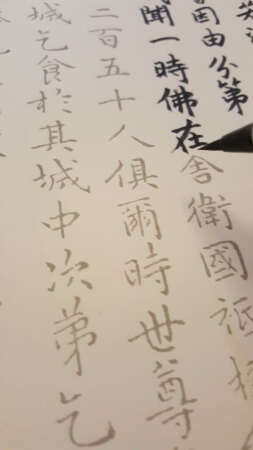 因由分第
聞一時佛在舍衛國祇
二百五十人俱爾時世尊
城乞食於其城中次第乞